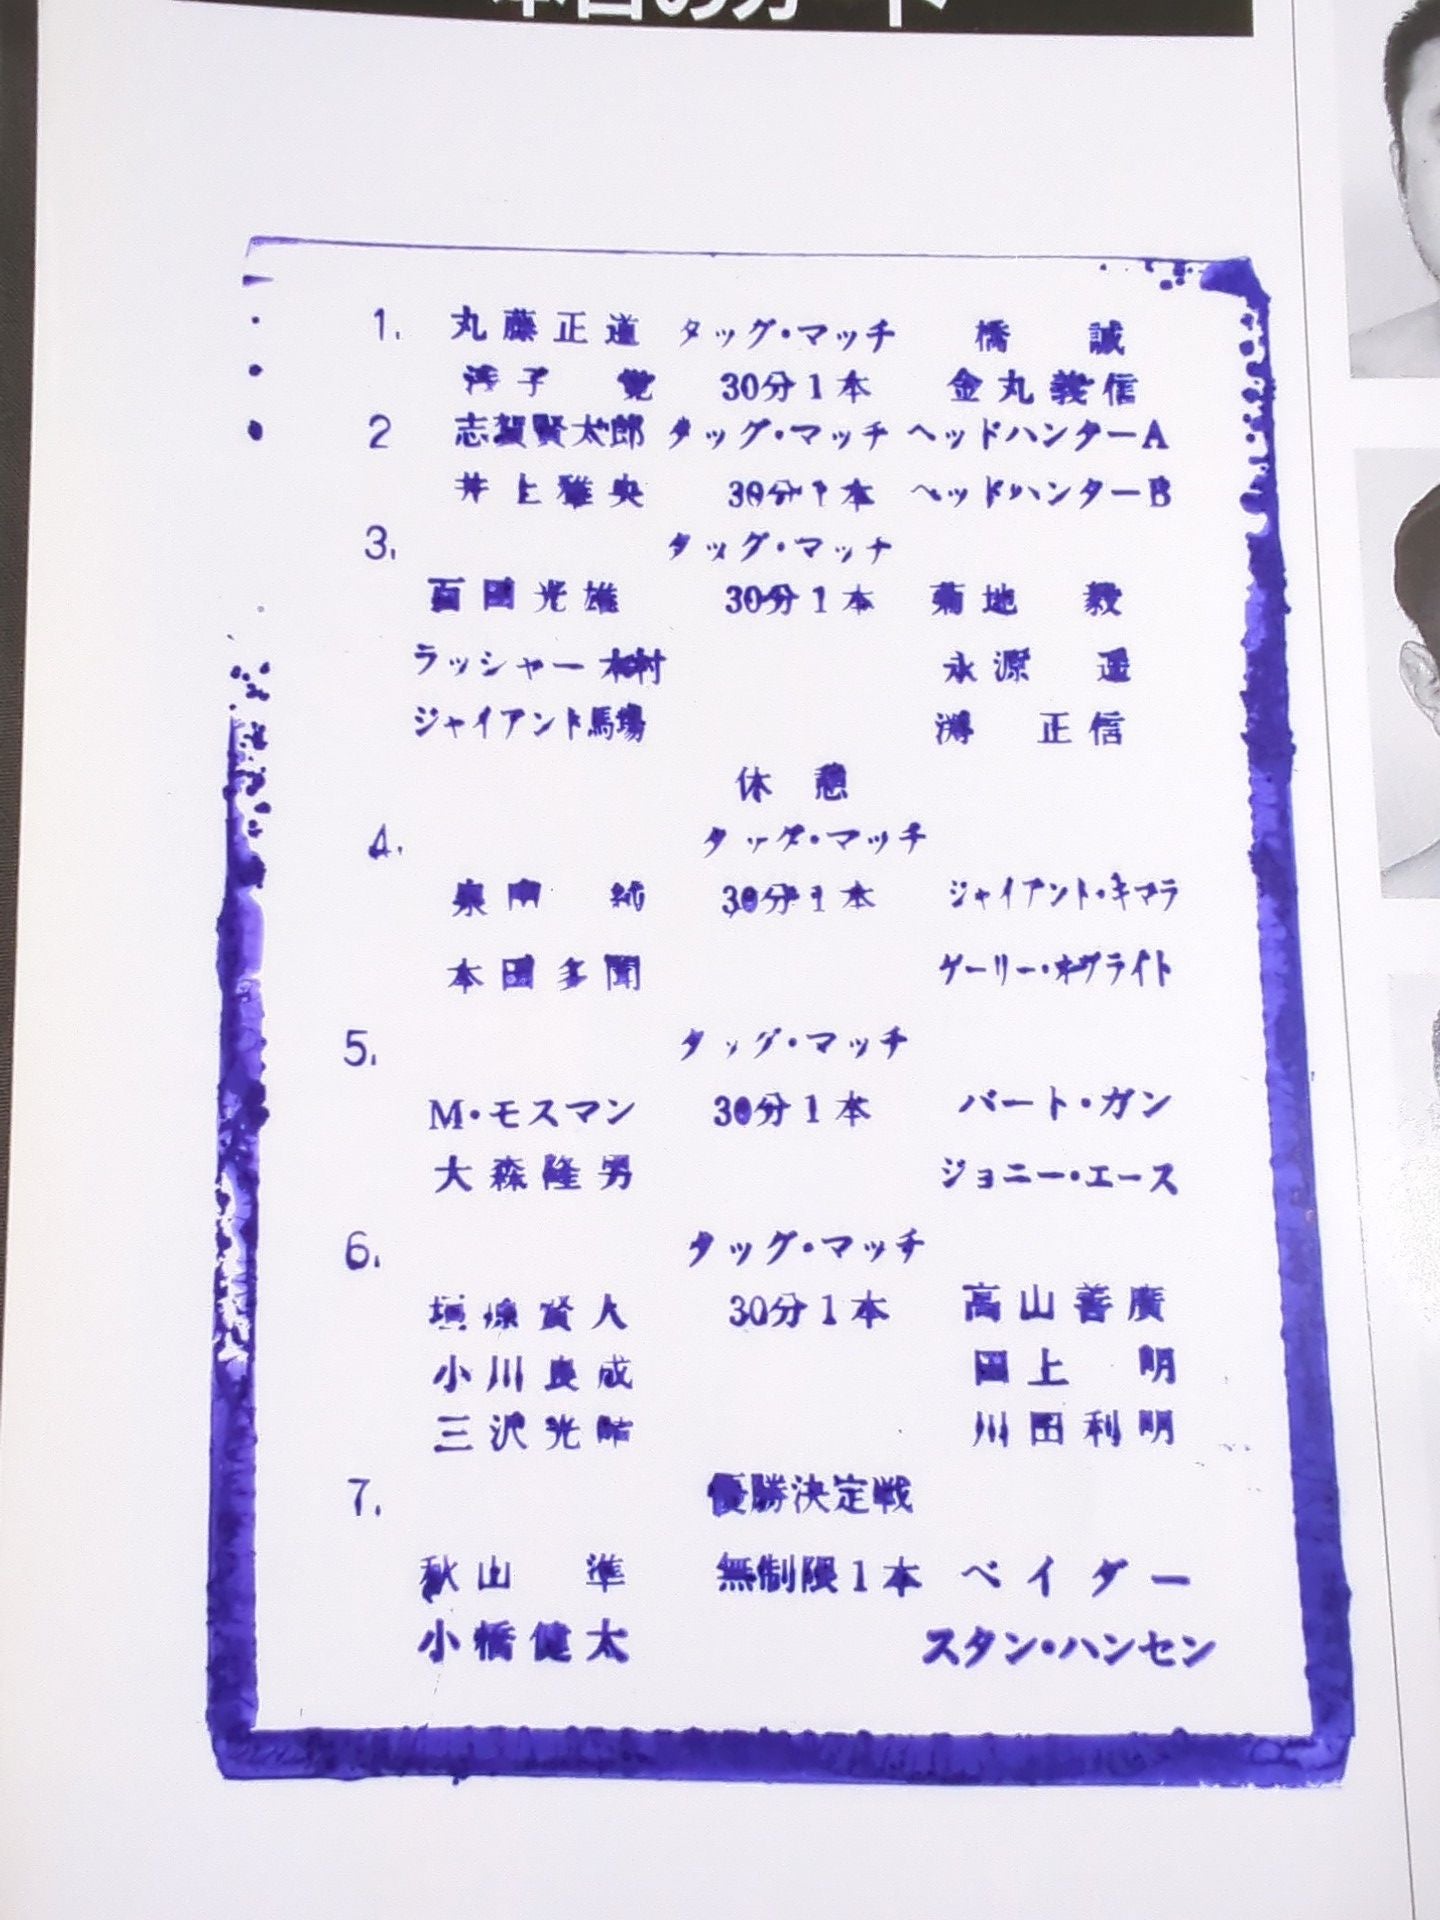 本日のカード
1. 丸藤正道 タッグ・マッチ 橋 誠
浅子 覚 30分1本 金丸義信
2 志賀賢太郎 タッグ・マッチ ヘッドハンターA
井上雅央 30分1本 ヘッドハンターB
3. タッグ・マッチ
百田光雄 30分1本 菊地 毅
ラッシャー木村 永源 遥
ジャイアント馬場 渕 正信
休憩
4. タッグ・マッチ
泉田 純 30分1本 ジャイアント・キマラ
本田多聞 ゲーリー・オブライト
5. タッグ・マッチ
M・モスマン 30分1本 バート・ガン
大森隆男 ジョニー・エース
6. タッグ・マッチ
垣原賢人 30分1本 高山善廣
小川良成 田上 明
三沢光晴 川田利明
7. 優勝決定戦
秋山 準 無制限1本 ベイダー
小橋健太 スタン・ハンセン